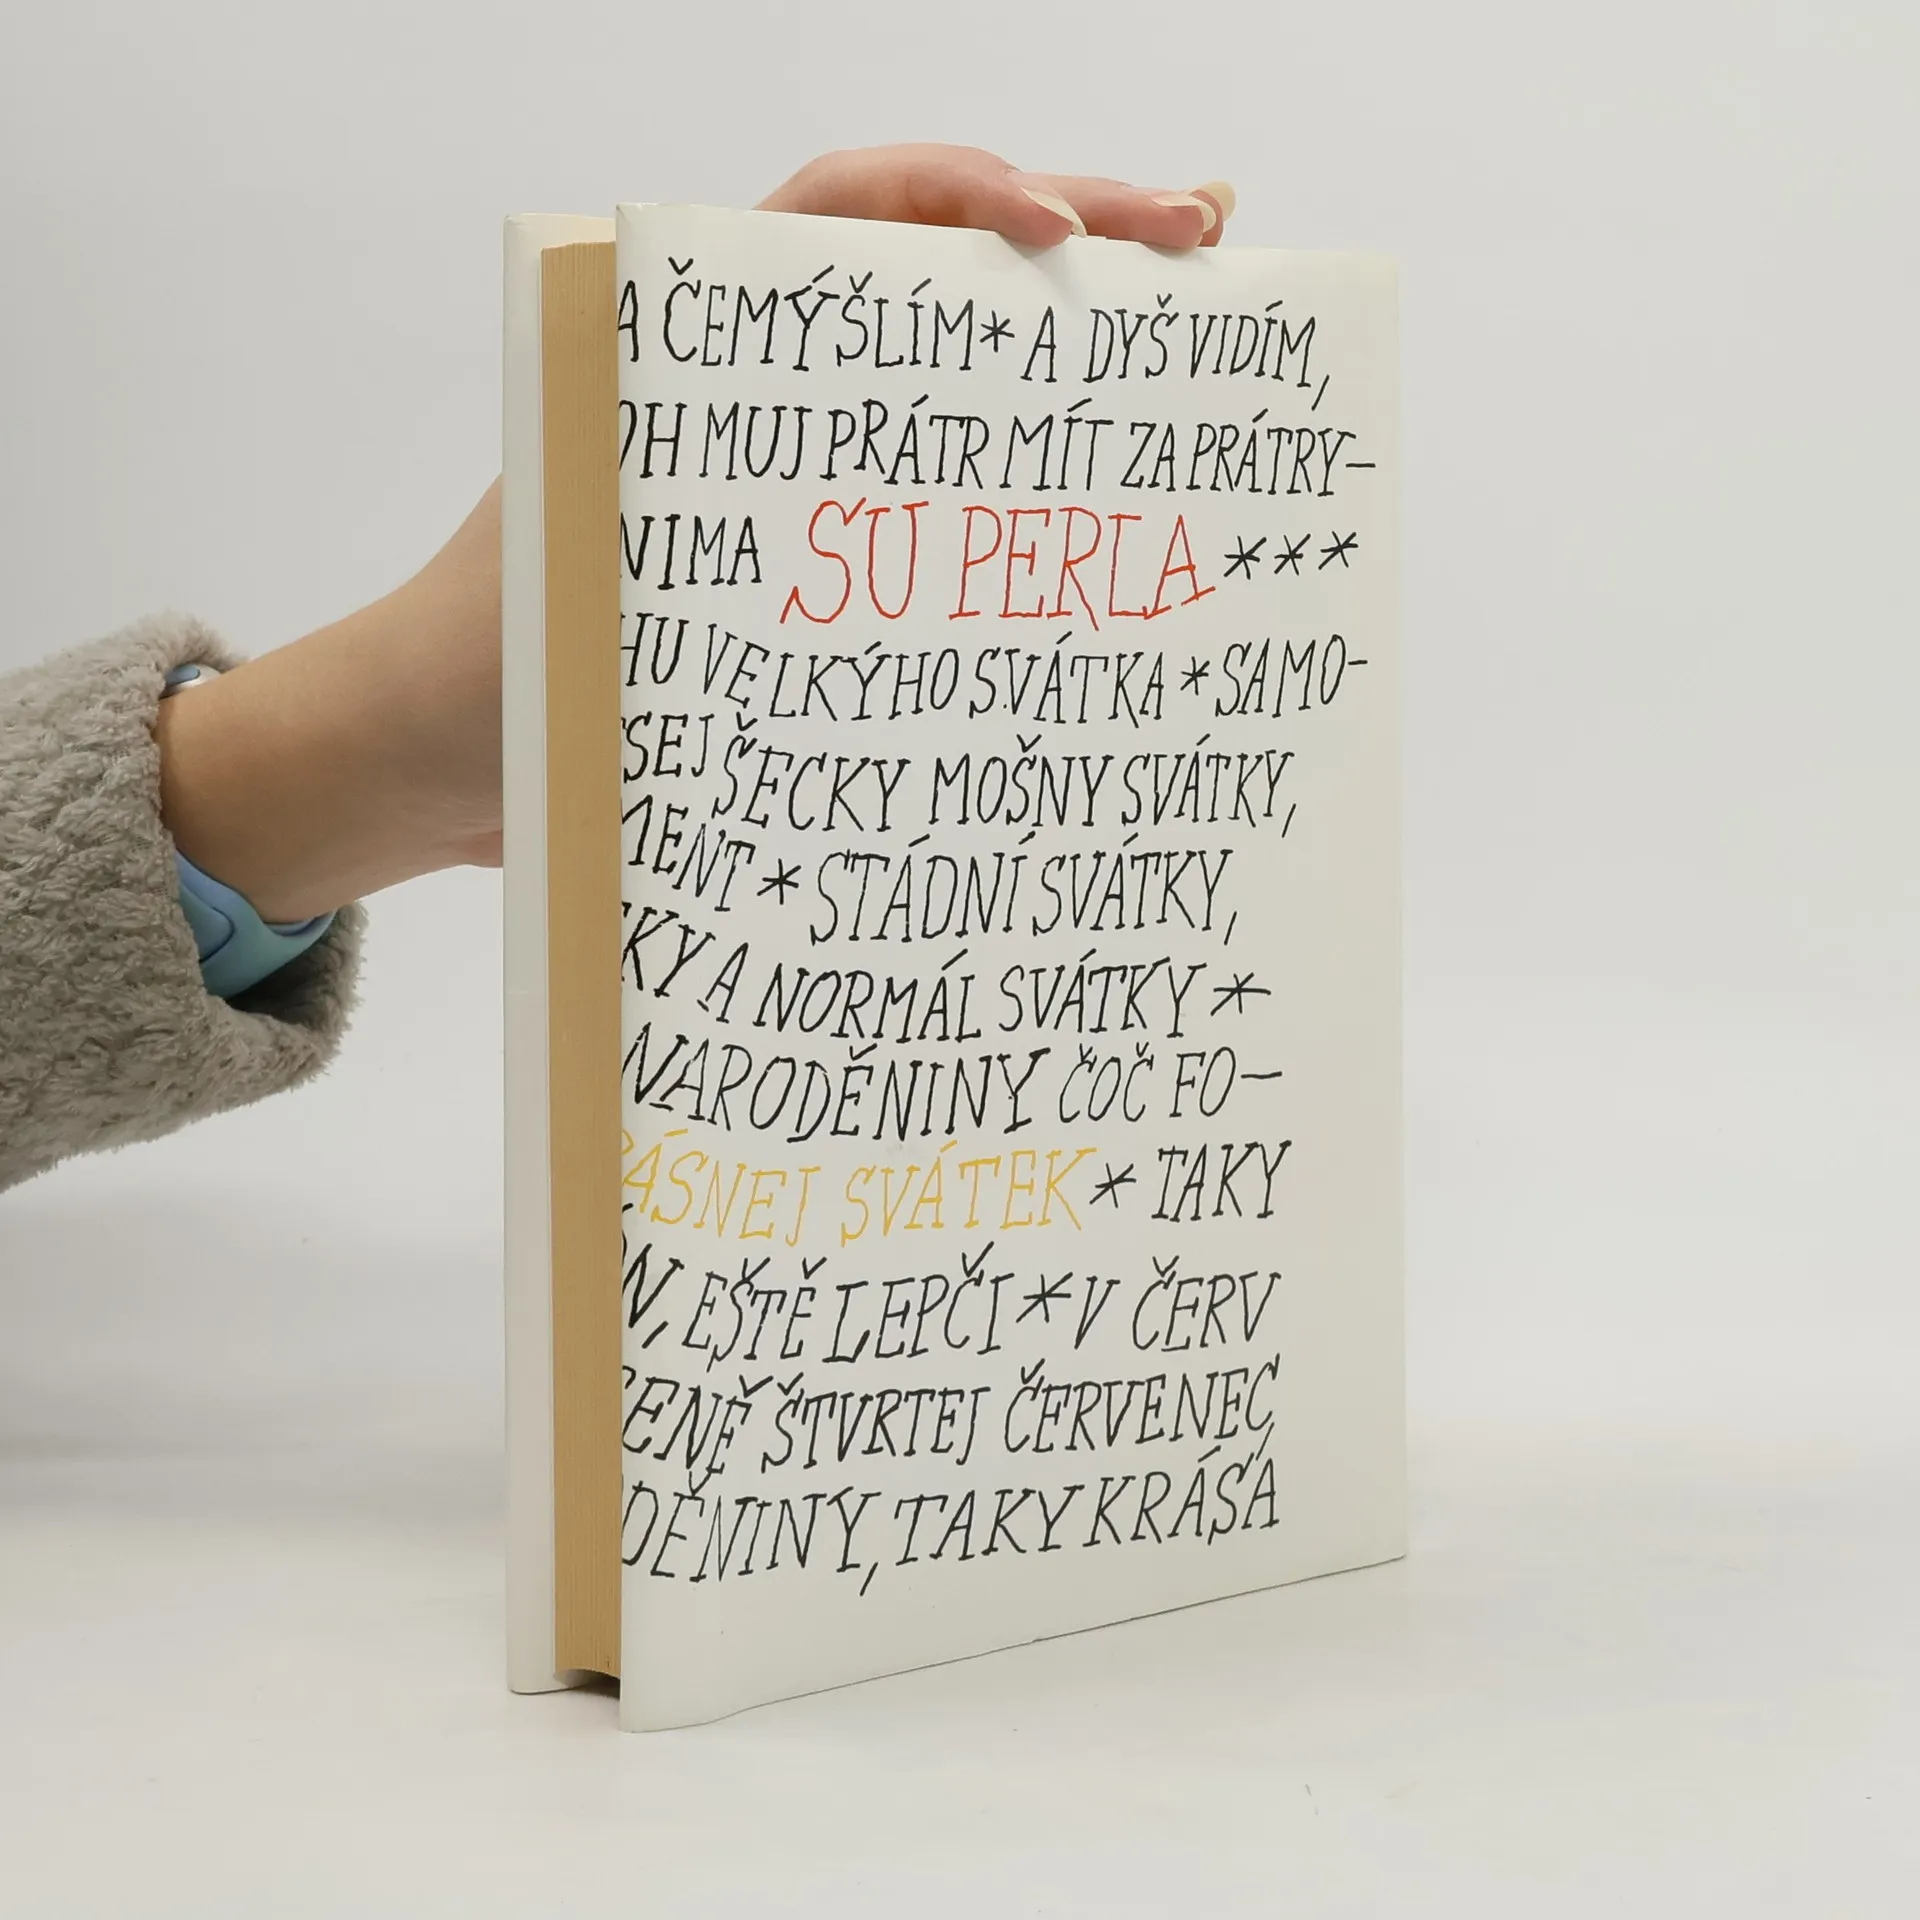 A ČEMÝŠLÍM * A DYŠ VIDÍM,
OH MUJ PRÁTR MÍT ZA PRÁTRY–
NIMA SU PERLA ***
HU VELKÝHO SVÁTKA * SAMO-
SEJ ŠECKY MOŠNY SVÁTKY,
MENT * STÁDNÍ SVÁTKY,
KY A NORMÁL SVÁTKY *
NARODĚNINY ČOČ FO–
ÁSNEJ SVÁTEK * TAKY
N, EŠTĚ LEPČI * V ČERV
ENĚ ŠTVRTEJ ČERVENEC,
DĚNINY, TAKY KRÁSA